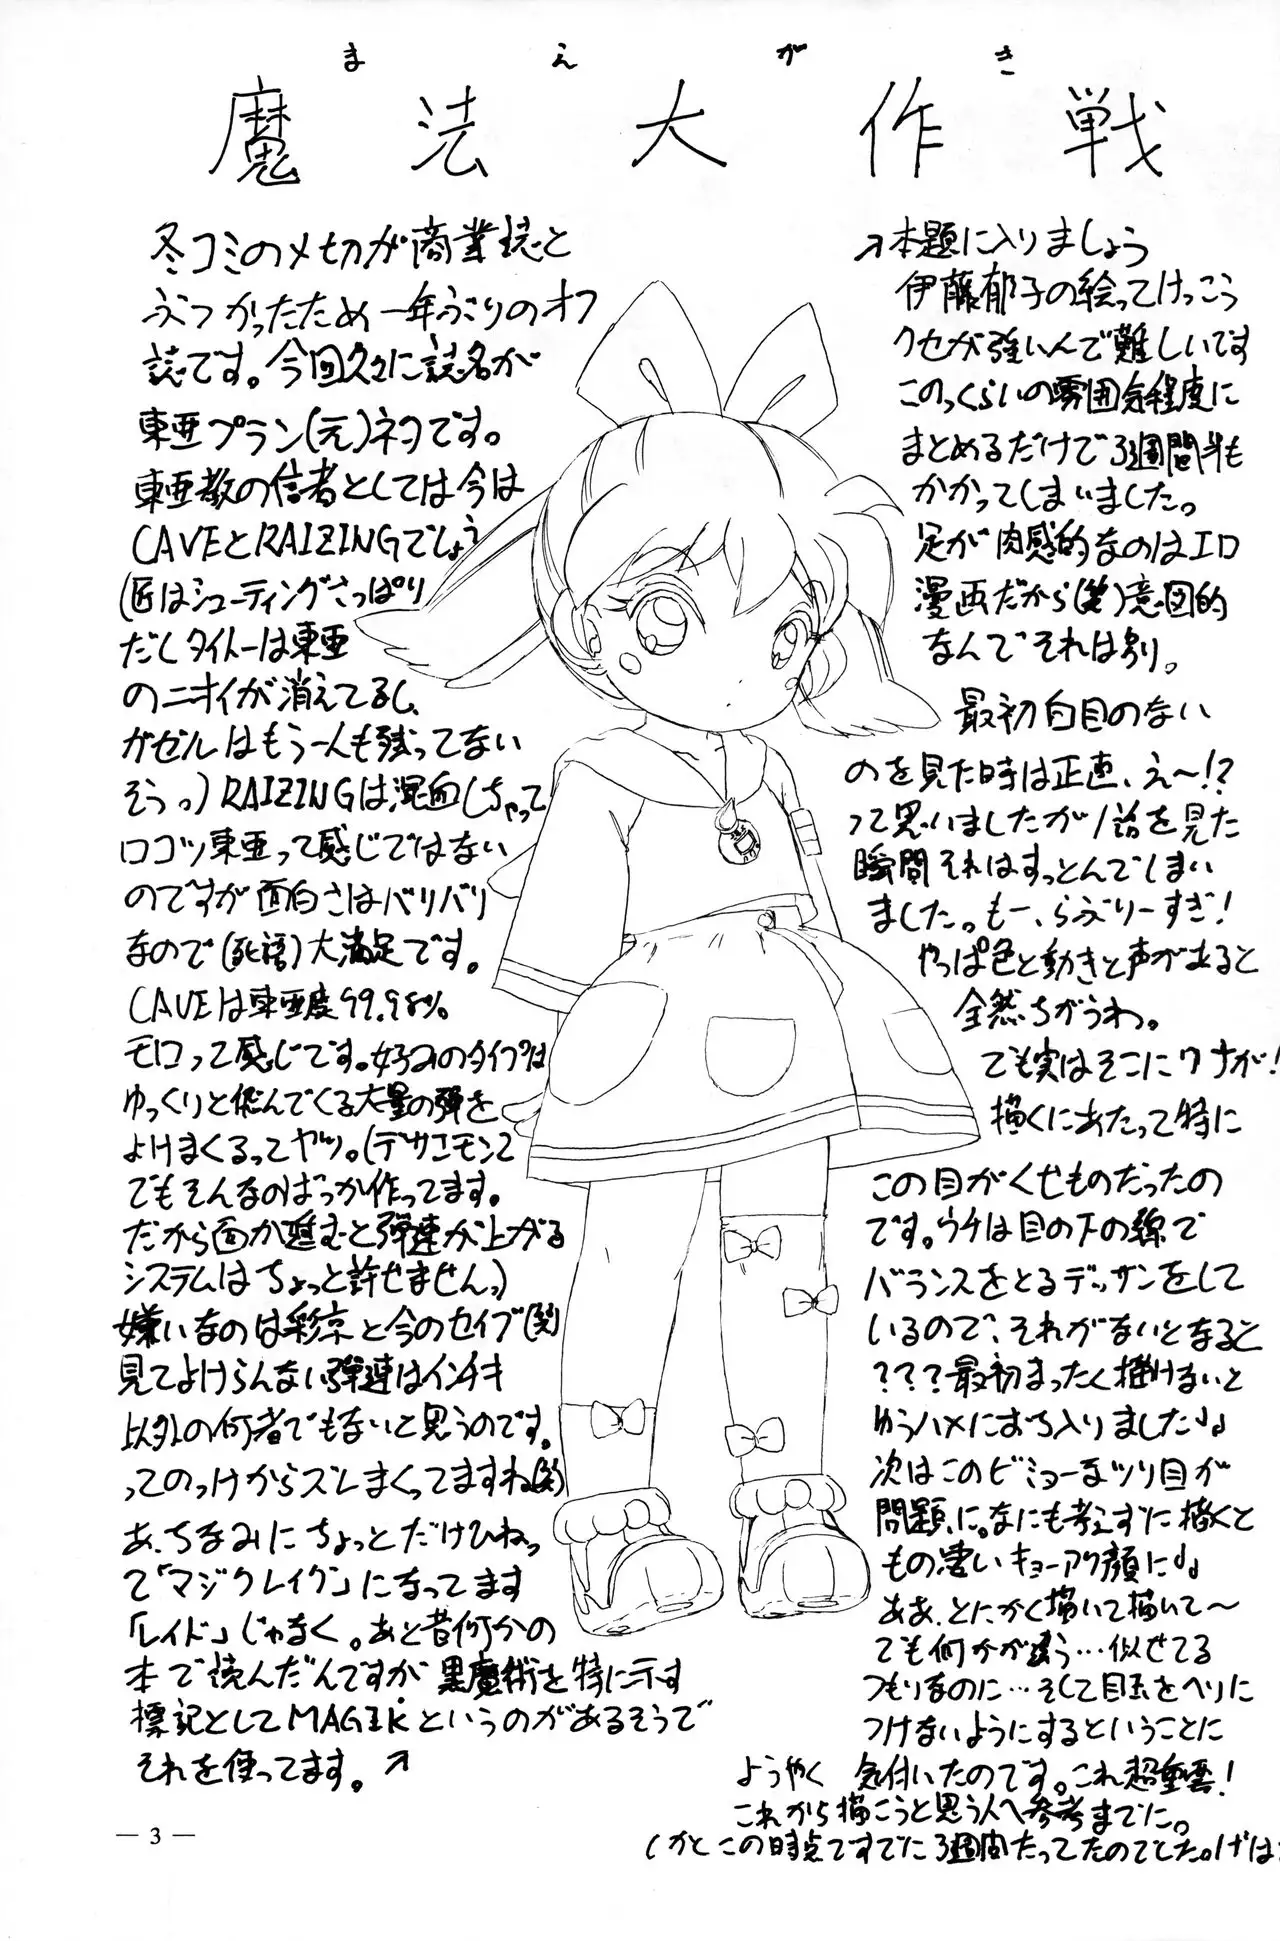 まえがき
魔法大作戦
冬コミの〆切が商業誌と
ぶつかったため一年ぶりのオフ
誌です。今回久々に誌名が
東亜プラン(元)ネタです。
東亜教の信者としては今は
CAVEとRAIZINGでしょう
(匠はシューティングさっぱり
だしタイトーは東亜
のニオイが消えてるし、
ガゼルはもう一人も残ってない
そうっ)RAIZINGは混血しちゃって
ロコツ東亜って感じではない
のですが面白さはバリバリ
なので(死語)大満足です。
CAVEは東亜度99.98%。
モロって感じです。好みのタイプは
ゆっくりと飛んでくる大量の弾を
よけまくるってヤツ。(デザエモン2
でもそんなのばっか作ってます。
だから面が進むと弾速が上がる
システムはちょっと許せませんっ)
嫌いなのは彩京と今のセイブ(関)
見てよけらんない弾速はインチキ
以外の何者でもないと思うのです。
ってのっけからズレまくってますね(笑)
あ、ちなみにちょっとだけひねっ
て「マジクレイク」になってます
「レイド」じゃなく。あと昔何かの
本で読んだんですが黒魔術を特に示す
標記としてMAGIKというのがあるそうで
それを使ってます。↗
↗本題に入りましょう
伊藤郁子の絵ってけっこう
クセが強いんで難しいです
このっくらいの雰囲気程度に
まとめるだけで3週間半も
かかってしまいました。
足が肉感的なのはエロ
漫画だから(笑)意図的
なんでそれは別。
最初白目のない
のを見た時は正直、え〜!?
って思いましたが1話を見た
瞬間それはすっとんでしまい
ました。もー、らぶりーすぎ!
やっぱ色と動きと声があると
全然ちがうわ。
でも実はそこにワナが!
描くにあたって特に
この目がくせものだったの
です。ウチは目の下の線で
バランスをとるデッサンをして
いるので、それがないとなると
???最初まったく描けないと
ゆうハメにおち入りました♩
次はこのビミョーなツリ目が
問題に。なにも考えずに描くと
もの凄いキョーアク顔に♩
ああ、とにかく描いて描いて〜
でも何かが違う…似せてる
つもりなのに…そして目玉をヘリに
つけないようにするということに
ようやく気付いたのです。これ超重要!
これから描こうと思う人へ参考までに。
(かとこの時点ですでに3週間たってたのでした。げは
— 3 —